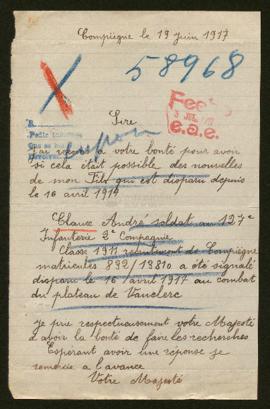 Compiègne le 19 Juin 1917
58968
Sire
J'ai recours a votre bonté pour avoir
si cela était possible des nouvelles
de mon Fils qui est disparu depuis
le 16 avril 1917
André soldat au 127e
Infanterie 2e Compagnie
Classe 1911 recrutement de Compiègne
matricules 892/13810 a été signalé
disparu le 16 avril 1917 au combat
du plateau de Vauclerc
je prie respectueusement votre Majesté
d'avoir la bonté de faire les recherches
Espérant avoir une réponse je
remercie a l'avance
Votre Majesté